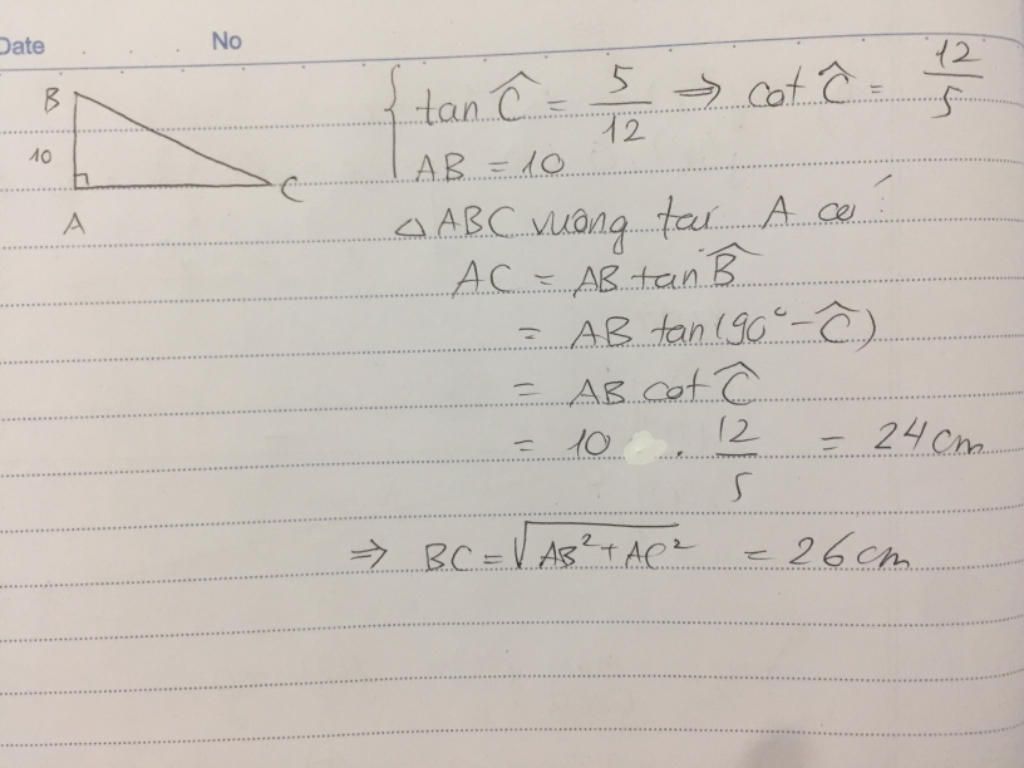 Date No
B
10
A
C
tan Ĉ = 5/12 ⇒ cot Ĉ = 12/5
AB = 10
△ ABC vuông tại A có:
AC = AB tan B̂
= AB tan(90° - Ĉ)
= AB cot Ĉ
= 10 . 12/5 = 24 cm
⇒ BC = √(AB² + AC²) = 26 cm